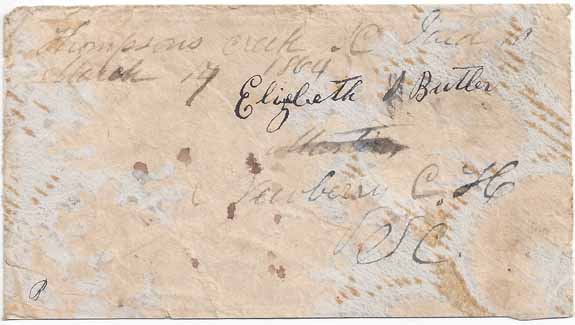 Thompsons creek SC Paid
March 17 1864
Elizbeth Butler
Newberry C. H
SC.
P